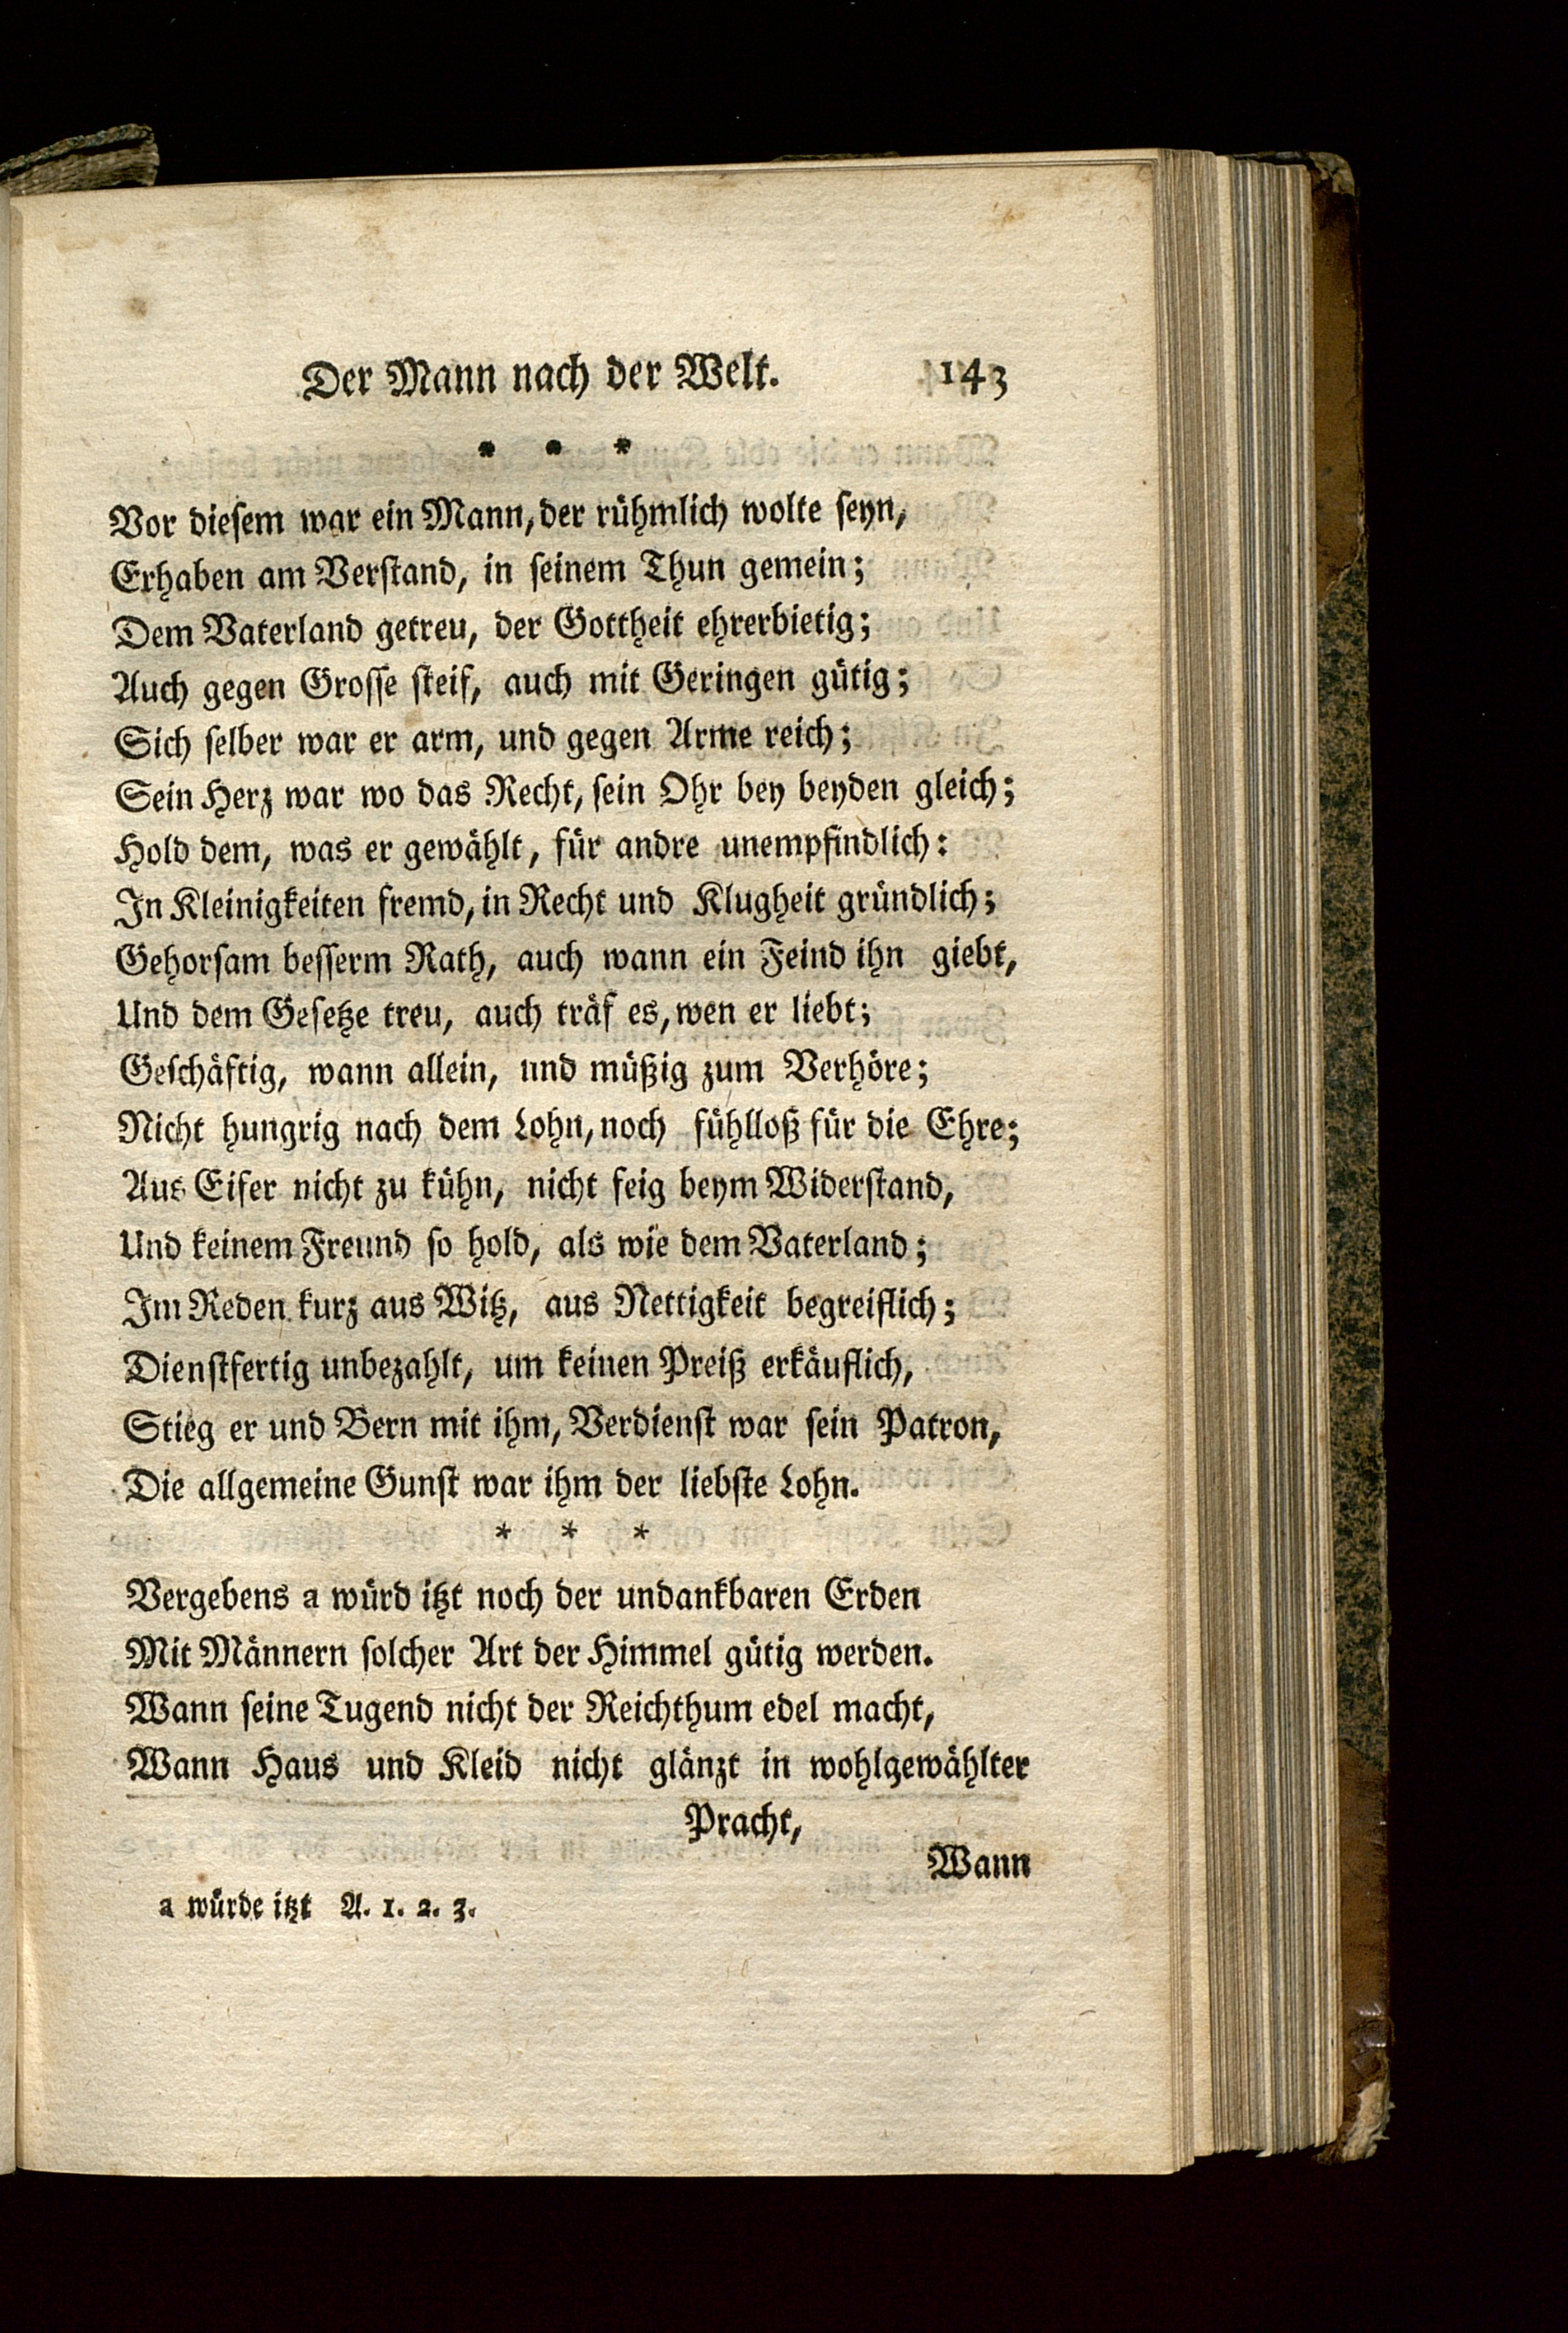 Der Mann nach der Welt. 143
* * *
Vor diesem war ein Mann, der rühmlich wolte seyn,
Erhaben am Verstand, in seinem Thun gemein;
Dem Vaterland getreu, der Gottheit ehrerbietig;
Auch gegen Grosse steif, auch mit Geringen gütig;
Sich selber war er arm, und gegen Arme reich;
Sein Herz war wo das Recht, sein Ohr bey beyden gleich;
Hold dem, was er gewählt, für andre unempfindlich:
In Kleinigkeiten fremd, in Recht und Klugheit gründlich;
Gehorsam besserm Rath, auch wann ein Feind ihn giebt,
Und dem Gesetze treu, auch träf es, wen er liebt;
Geschäftig, wann allein, und müßig zum Verhöre;
Nicht hungrig nach dem Lohn, noch fühlloß für die Ehre;
Aus Eifer nicht zu kühn, nicht feig beym Widerstand,
Und keinem Freund so hold, als wie dem Vaterland;
Im Reden kurz aus Witz, aus Nettigkeit begreiflich;
Dienstfertig unbezahlt, um keinen Preiß erkäuflich,
Stieg er und Bern mit ihm, Verdienst war sein Patron,
Die allgemeine Gunst war ihm der liebste Lohn.
* * *
Vergebens a würd itzt noch der undankbaren Erden
Mit Männern solcher Art der Himmel gütig werden.
Wann seine Tugend nicht der Reichthum edel macht,
Wann Haus und Kleid nicht glänzt in wohlgewählter
Pracht,
Wann
a würde itzt A. 1. 2. 3.